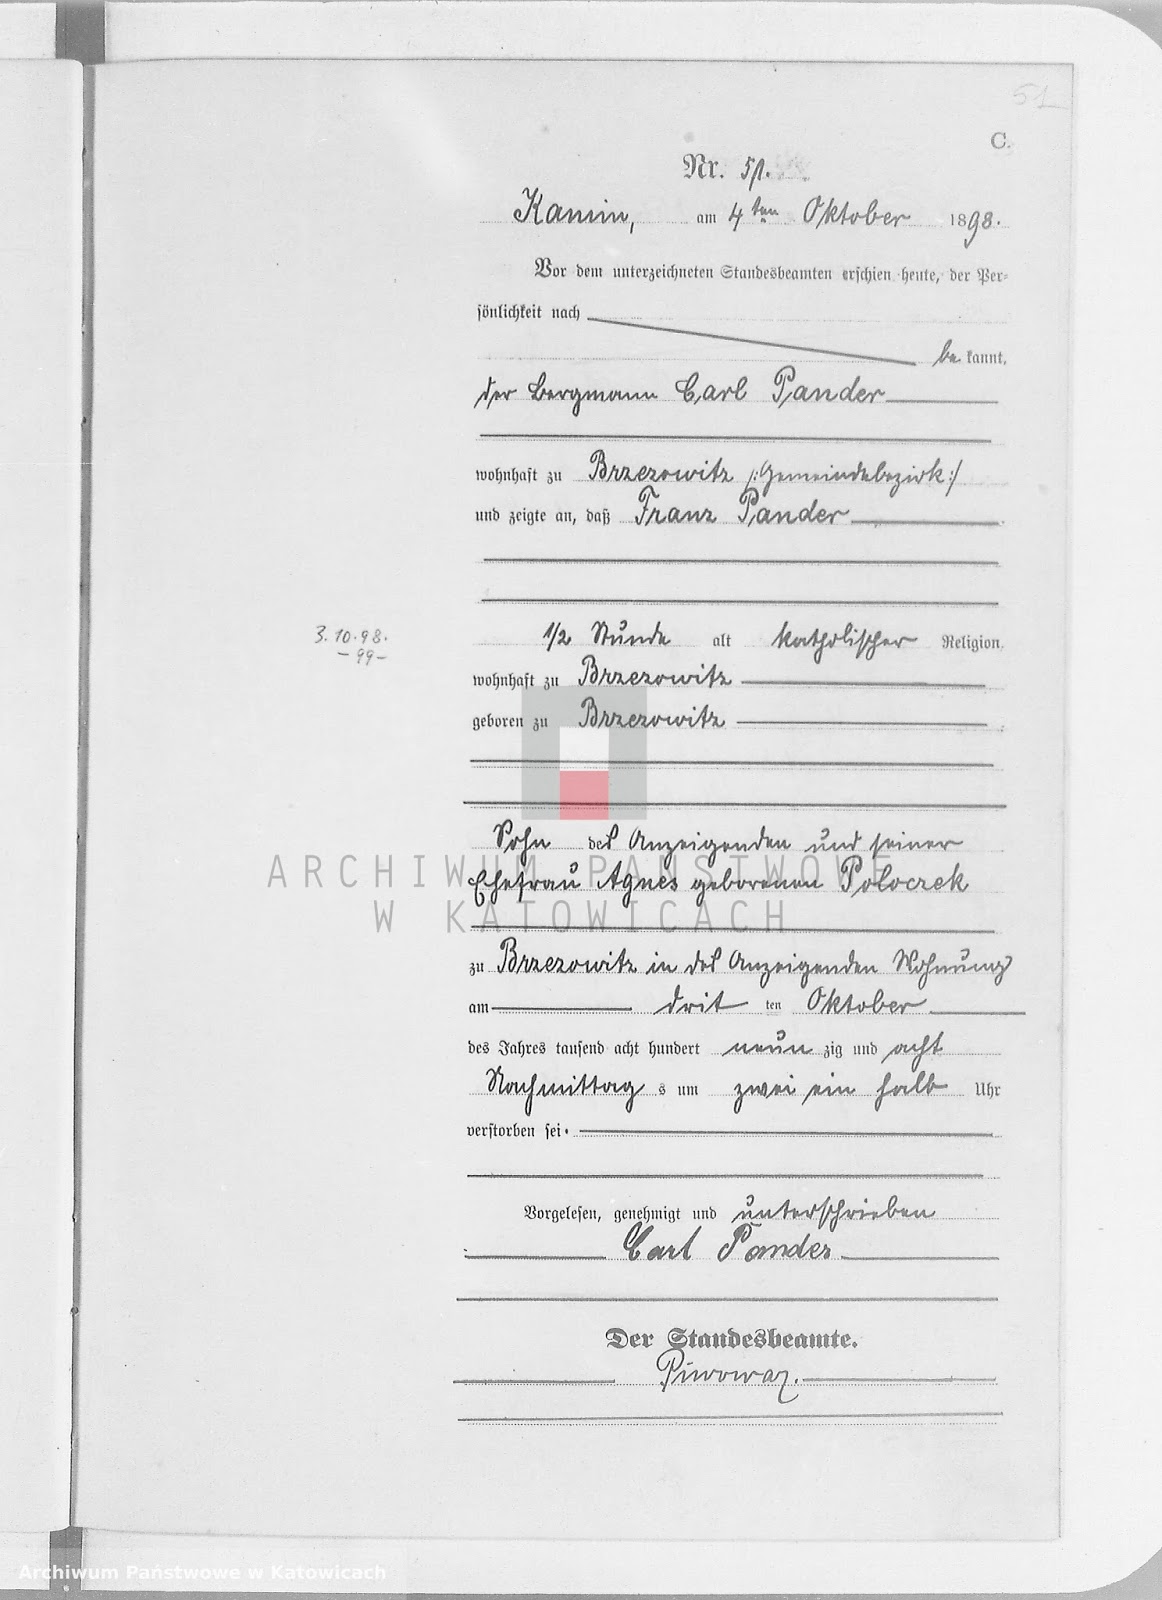 51
C.
Nr. 51.
Kamin, am 4ten Oktober 1898.
Vor dem unterzeichneten Standesbeamten erschien heute, der Per-
sönlichkeit nach
be kannt,
der Bergmann Carl Pander
wohnhaft zu Brzezowitz /:Gemeindebezirk:/
und zeigte an, daß Franz Pander
3.10.98.
-99-
1/2 Stunde alt katholischer Religion,
wohnhaft zu Brzezowitz
geboren zu Brzezowitz
Sohn des Anzeigenden und seiner
Ehefrau Agnes geborenen Poloczek
zu Brzezowitz in des Anzeigenden Wohnung
am drit ten Oktober
des Jahres tausend acht hundert neun zig und acht
Nachmittag s um zwei ein halb Uhr
verstorben sei.
Vorgelesen, genehmigt und unterschrieben
Carl Pander
Der Standesbeamte.
Piwowar.
ARCHIWUM PAŃSTWOWE
W KATOWICACH
Archiwum Państwowe w Katowicach